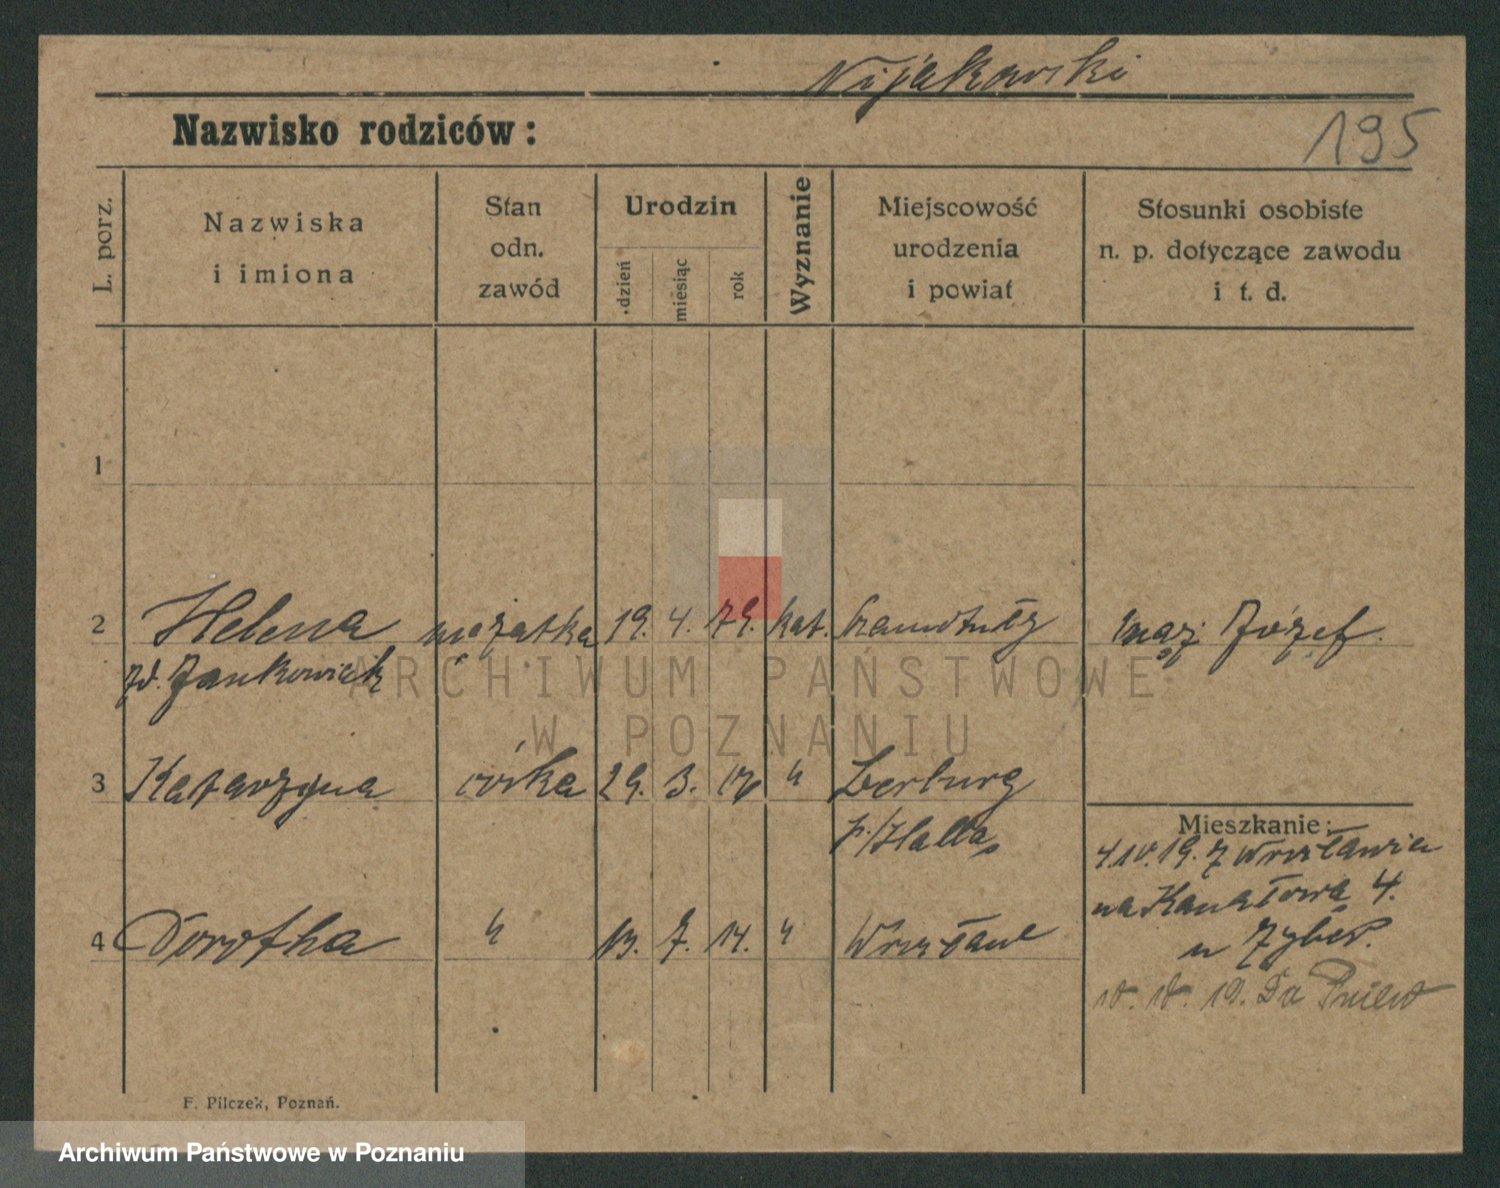 Nijakowski
Nazwisko rodziców:
195
L. porz.
Nazwiska
i imiona
Stan
odn.
zawód
Urodzin
dzień
miesiąc
rok
Wyznanie
Miejscowość
urodzenia
i powiat
Stosunki osobiste
n. p. dotyczące zawodu
i t. d.
1
2 Helena mężatka 19. 4. 79. kat. mąż Józef.
zd. Jankowiak
3 Katarzyna córka 29. 3. "
4 Dorotha " 13. 7. 14. " Wrocław
Mieszkanie:
19. z Wrocławia
na Kanałowa 4.
u
19. Do Pniew
F. Pilczek, Poznań.
ARCHIWUM PAŃSTWOWE
W POZNANIU
Archiwum Państwowe w Poznaniu